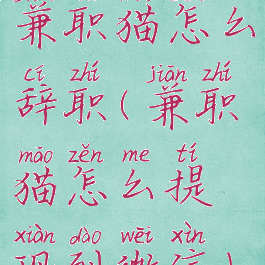 兼职猫怎么
cí zhí jiān zhí
辞职(兼职
māo zěn me tí
猫怎么提
xiàn dào wēi xìn
现到微信)